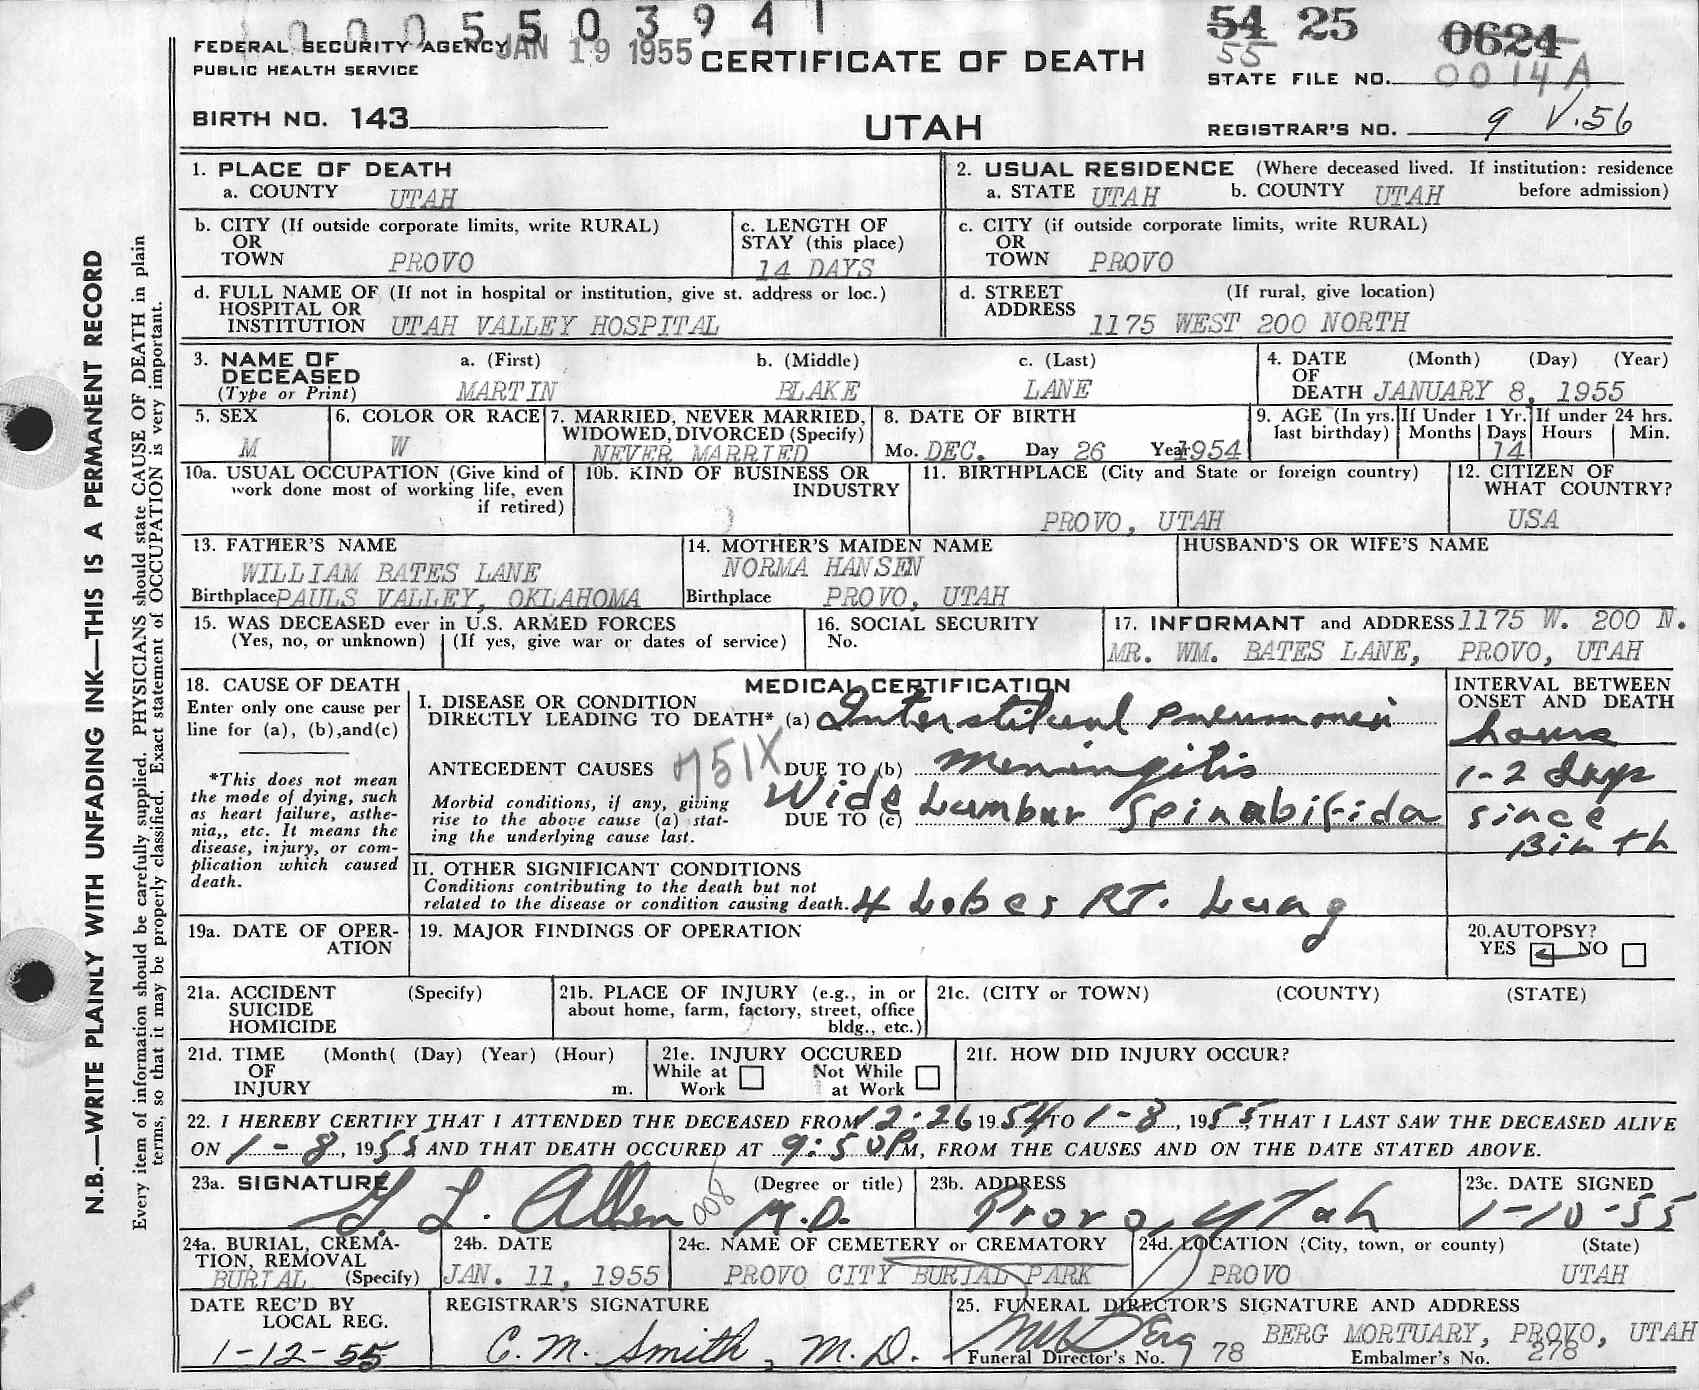 10005503941
54 25 0624
FEDERAL SECURITY AGENCY JAN 19 1955 CERTIFICATE OF DEATH 55
PUBLIC HEALTH SERVICE STATE FILE NO. 0014A
BIRTH NO. 143 UTAH REGISTRAR'S NO. 9 V.56
1. PLACE OF DEATH
a. COUNTY UTAH
2. USUAL RESIDENCE (Where deceased lived. If institution: residence
a. STATE UTAH b. COUNTY UTAH before admission)
b. CITY (If outside corporate limits, write RURAL)
OR
TOWN PROVO
c. LENGTH OF
STAY (this place)
14 DAYS
c. CITY (if outside corporate limits, write RURAL)
OR
TOWN PROVO
d. FULL NAME OF (If not in hospital or institution, give st. address or loc.)
HOSPITAL OR
INSTITUTION UTAH VALLEY HOSPITAL
d. STREET (If rural, give location)
ADDRESS
1175 WEST 200 NORTH
3. NAME OF a. (First) b. (Middle) c. (Last)
DECEASED
(Type or Print) MARTIN BLAKE LANE
4. DATE (Month) (Day) (Year)
OF
DEATH JANUARY 8, 1955
5. SEX
M
6. COLOR OR RACE
W
7. MARRIED, NEVER MARRIED,
WIDOWED, DIVORCED (Specify)
NEVER MARRIED
8. DATE OF BIRTH
Mo. DEC. Day 26 Year 1954
9. AGE (In yrs.
last birthday)
If Under 1 Yr.
Months Days
14
If under 24 hrs.
Hours Min.
10a. USUAL OCCUPATION (Give kind of
work done most of working life, even
if retired)
10b. KIND OF BUSINESS OR
INDUSTRY
11. BIRTHPLACE (City and State or foreign country)
PROVO, UTAH
12. CITIZEN OF
WHAT COUNTRY?
USA
13. FATHER'S NAME
WILLIAM BATES LANE
Birthplace PAULS VALLEY, OKLAHOMA
14. MOTHER'S MAIDEN NAME
NORMA HANSEN
Birthplace PROVO, UTAH
HUSBAND'S OR WIFE'S NAME
15. WAS DECEASED ever in U.S. ARMED FORCES
(Yes, no, or unknown) (If yes, give war or dates of service)
16. SOCIAL SECURITY
No.
17. INFORMANT and ADDRESS 1175 W. 200 N.
MR. WM. BATES LANE, PROVO, UTAH
18. CAUSE OF DEATH
Enter only one cause per
line for (a), (b), and (c)
*This does not mean
the mode of dying, such
as heart failure, asthe-
nia,, etc. It means the
disease, injury, or com-
plication which caused
death.
MEDICAL CERTIFICATION
I. DISEASE OR CONDITION
DIRECTLY LEADING TO DEATH* (a) Interstitial pneumonia
ANTECEDENT CAUSES 751X DUE TO (b) Meningitis
Morbid conditions, if any, giving
rise to the above cause (a) stat-
ing the underlying cause last.
DUE TO (c) Wide Lumbar Spinabifida
INTERVAL BETWEEN
ONSET AND DEATH
hours
1-2 days
since
Birth
II. OTHER SIGNIFICANT CONDITIONS
Conditions contributing to the death but not
related to the disease or condition causing death. 4 Lobes RT. Lung
19a. DATE OF OPER-
ATION
19. MAJOR FINDINGS OF OPERATION
20. AUTOPSY?
YES NO
21a. ACCIDENT (Specify)
SUICIDE
HOMICIDE
21b. PLACE OF INJURY (e.g., in or
about home, farm, factory, street, office
bldg., etc.)
21c. (CITY or TOWN) (COUNTY) (STATE)
21d. TIME (Month( (Day) (Year) (Hour)
OF
INJURY m.
21e. INJURY OCCURED
While at Not While
Work at Work
21f. HOW DID INJURY OCCUR?
22. I HEREBY CERTIFY THAT I ATTENDED THE DECEASED FROM 12-26 1954 TO 1-8, 1955 THAT I LAST SAW THE DECEASED ALIVE
ON 1-8, 1955 AND THAT DEATH OCCURED AT 9:50 PM, FROM THE CAUSES AND ON THE DATE STATED ABOVE.
23a. SIGNATURE (Degree or title)
G. L. Allen 008 M.D.
23b. ADDRESS
Provo, Utah
23c. DATE SIGNED
1-10-55
24a. BURIAL, CREMA-
TION, REMOVAL
BURIAL (Specify)
24b. DATE
JAN. 11, 1955
24c. NAME OF CEMETERY or CREMATORY
PROVO CITY BURIAL PARK
24d. LOCATION (City, town, or county) (State)
PROVO UTAH
DATE REC'D BY
LOCAL REG.
1-12-55
REGISTRAR'S SIGNATURE
C. M. Smith, M.D.
25. FUNERAL DIRECTOR'S SIGNATURE AND ADDRESS
BERG MORTUARY, PROVO, UTAH
Funeral Director's No. 78 Embalmer's No. 278
N.B.—WRITE PLAINLY WITH UNFADING INK—THIS IS A PERMANENT RECORD
Every item of information should be carefully supplied. PHYSICIANS should state CAUSE OF DEATH in plain
terms, so that it may be properly classified. Exact statement of OCCUPATION is very important.